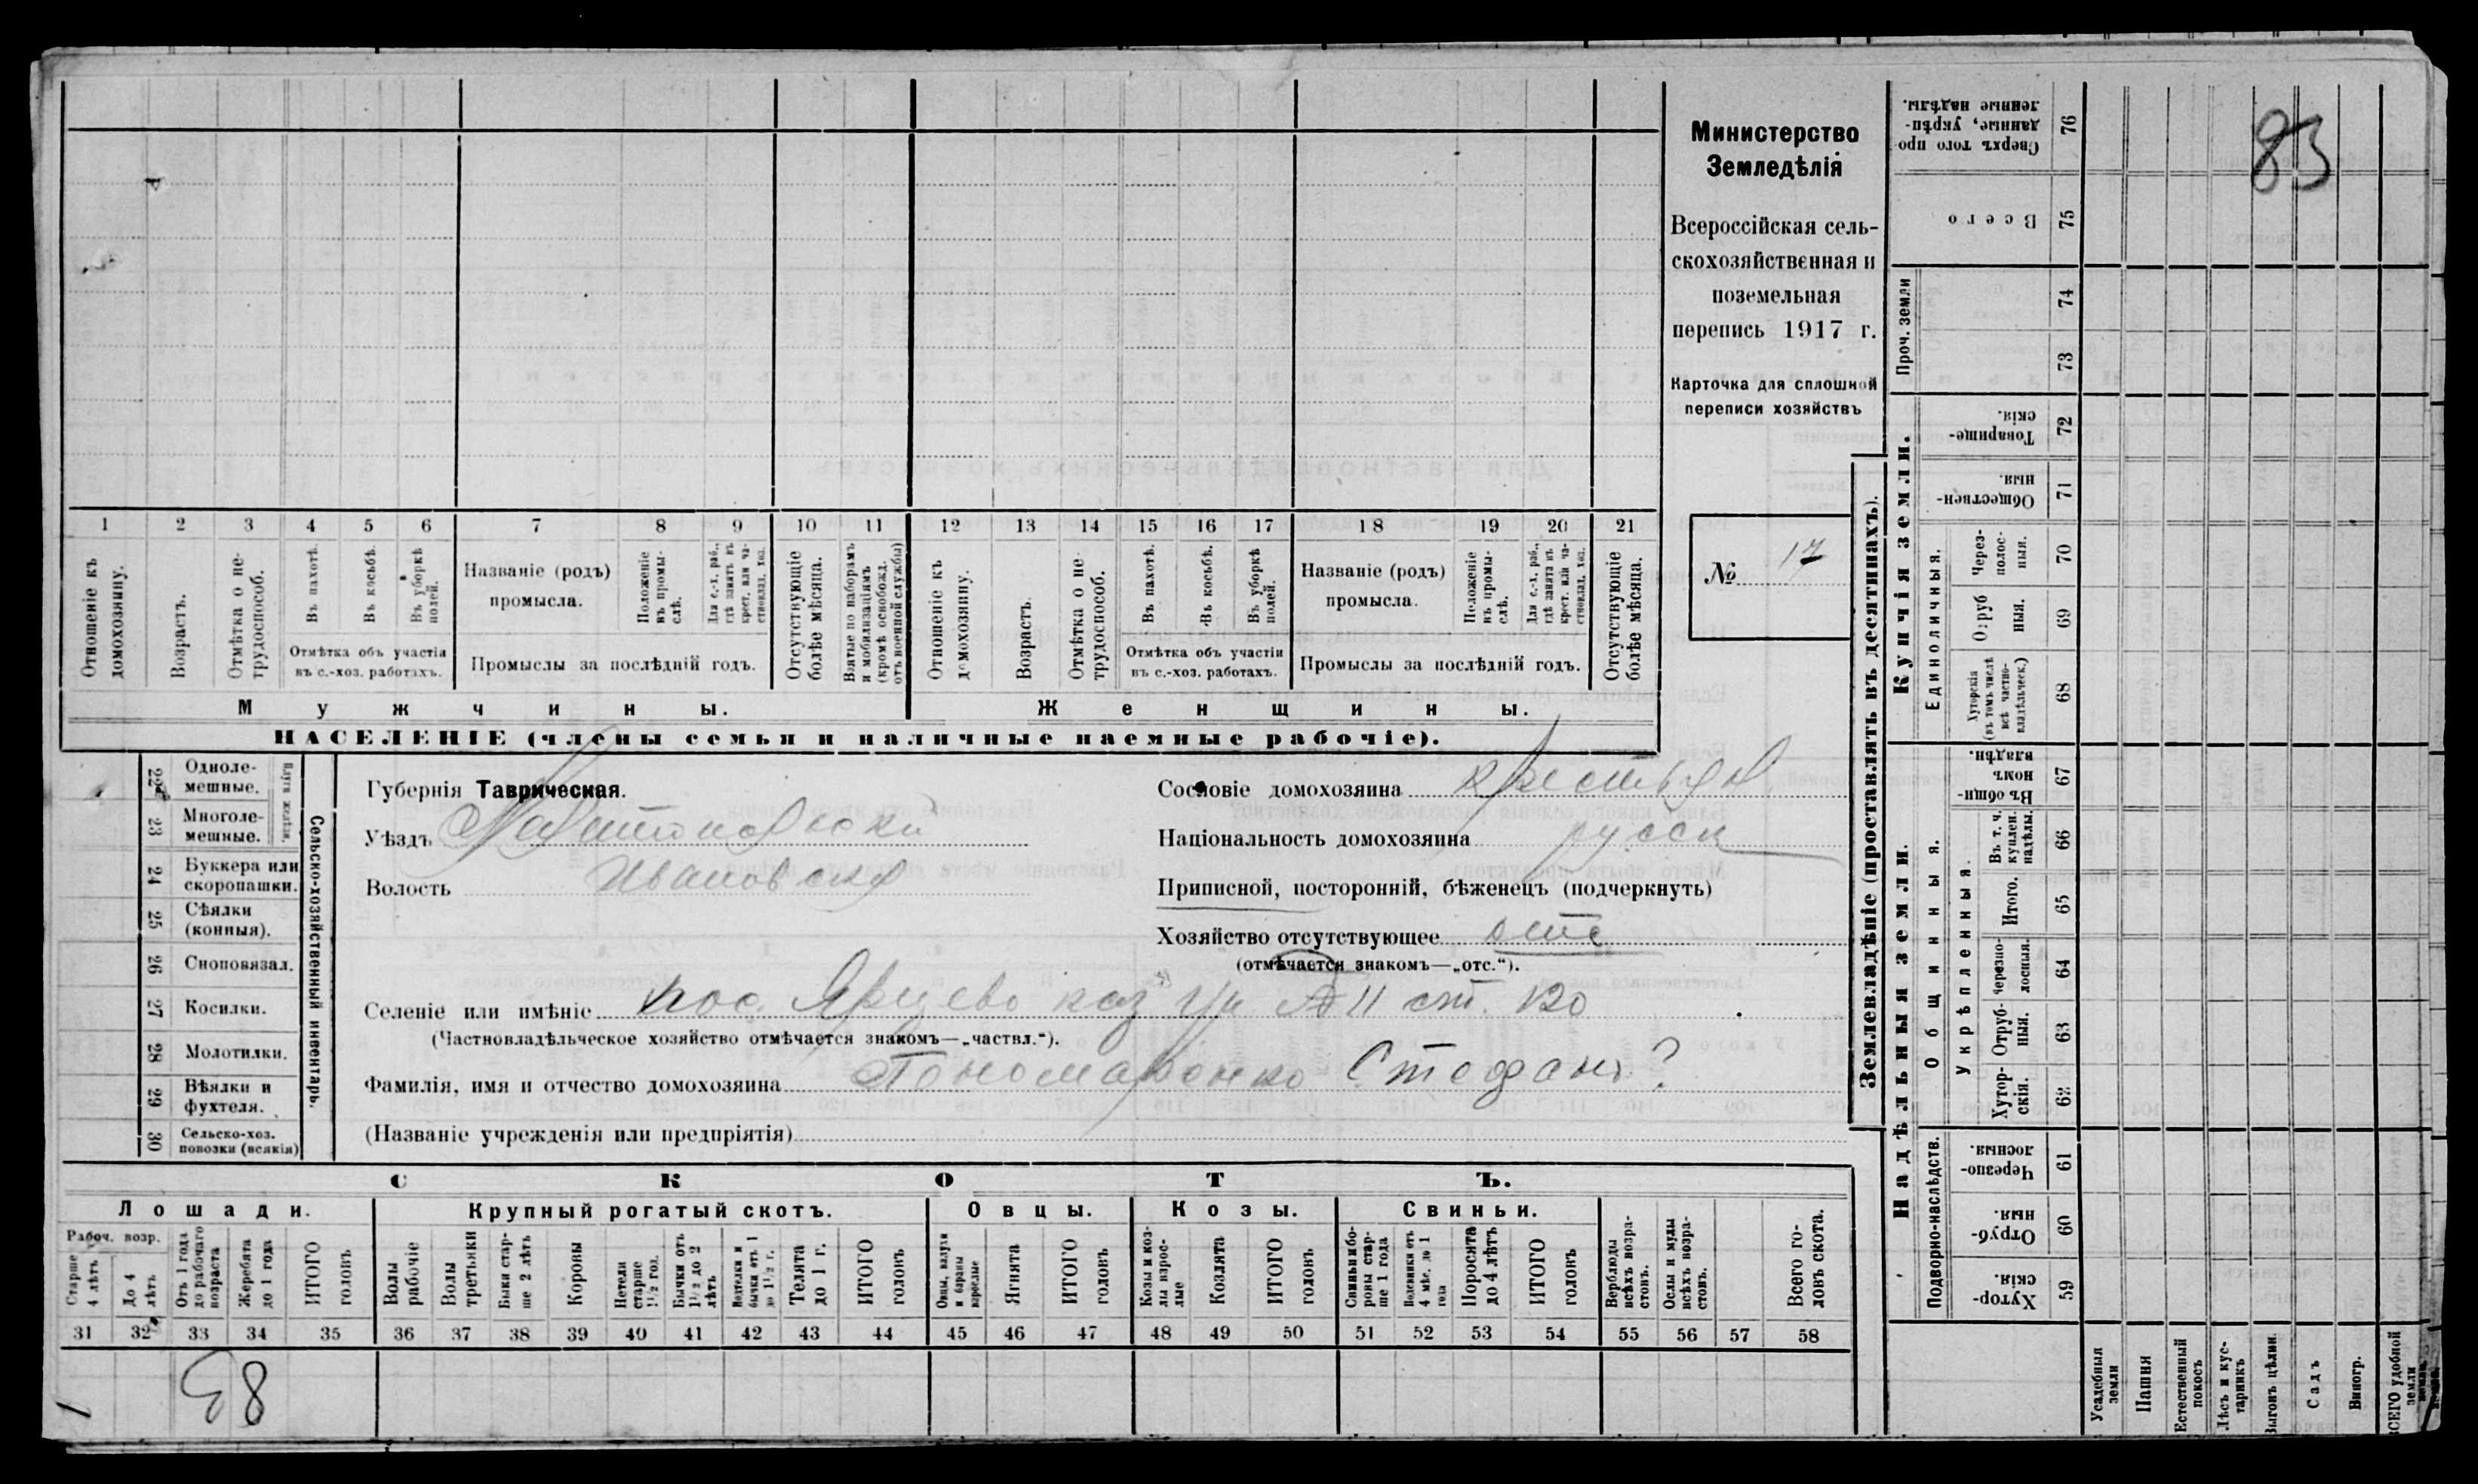 Министерство
Земледѣлія
Всероссійская сель-
скохозяйственная и
поземельная
перепись 1917 г.
Карточка для сплошной
переписи хозяйствъ
№ 17
83
1 2 3 4 5 6 7 8 9 10 11 12 13 14 15 16 17 18 19 20 21
Отношеніе къ домохозяину.
Возрастъ.
Отмѣтка о не-трудоспособ.
Въ пахотѣ.
Въ косьбѣ.
Въ уборкѣ полей.
Отмѣтка объ участіи
въ с.-хоз. работахъ.
Названіе (родъ)
промысла.
Положеніе въ промы-слѣ.
Для с.-х. раб., гдѣ занятъ въ крест. или ча-стновлад. хоз.
Промыслы за послѣдній годъ.
Отсутствующіе болѣе мѣсяца.
Взятые по наборамъ и мобилизаціямъ (кромѣ освобожд. отъ военной службы)
Отношеніе къ домохозяину.
Возрастъ.
Отмѣтка о не-трудоспособ.
Въ пахотѣ.
Въ косьбѣ.
Въ уборкѣ полей.
Отмѣтка объ участіи
въ с.-хоз. работахъ.
Названіе (родъ)
промысла.
Положеніе въ промы-слѣ.
Для с.-х. раб., гдѣ занята въ крест. или ча-стновлад. хоз.
Промыслы за послѣдній годъ.
Отсутствующіе болѣе мѣсяца.
Мужчины.
Женщины.
НАСЕЛЕНІЕ (члены семьи и наличные наемные рабочіе).
Сельско-хозяйственный инвентарь.
22 Одноле-мешные.
23 Многоле-мешные.
24 Буккера или скоропашки.
25 Сѣялки (конныя).
26 Сноповязал.
27 Косилки.
28 Молотилки.
29 Вѣялки и фухтеля.
30 Сельско-хоз. повозки (всякія)
Губернія Таврическая.
Уѣздъ
Волость Ивановск
Сословіе домохозяина крестьян
Національность домохозяина русск
Приписной, посторонній, бѣженецъ (подчеркнуть)
Хозяйство отсутствующее отс
(отмѣчается знакомъ—„отс.“).
Селеніе или имѣніе пос. Ярцево каз уч II ст. 120
(Частновладѣльческое хозяйство отмѣчается знакомъ—„частвл.“).
Фамилія, имя и отчество домохозяина Пономаренко Стефанъ ?
(Названіе учрежденія или предпріятія)
СКОТЪ.
Лошади. Крупный рогатый скотъ. Овцы. Козы. Свиньи.
Рабоч. возр.
Старше 4 лѣтъ
До 4 лѣтъ
Отъ 1 года до рабочаго возраста
Жеребята до 1 года
ИТОГО головъ
Волы рабочіе
Волы третьяки
Быки стар-ше 2 лѣтъ
Коровы
Нетели старше 1½ год.
Бычки отъ 1½ до 2 лѣтъ
Телята до 1 г.
ИТОГО головъ
Ягнята
ИТОГО головъ
Козы и коз-лы взрос-лые
Козлята
ИТОГО головъ
Свиньи бо-ровы стар-ше 1 года
Поросята до 4 лѣтъ
ИТОГО головъ
Верблюды всѣхъ возра-стовъ.
Ослы и мулы всѣхъ возра-стовъ.
Всего го-ловъ скота.
31 32 33 34 35 36 37 38 39 40 41 42 43 44 45 46 47 48 49 50 51 52 53 54 55 56 57 58
Землевладѣніе (проставлять въ десятинахъ).
Купчія земли.
Надѣльныя земли.
Сверхъ того про-данные, укрѣп-ленные надѣлы. 76
Всего 75
Проч. земли
74
73
Товарище-скія. 72
Обществен-ныя. 71
Единоличныя.
Через-полос-ныя. 70
Отруб-ныя. 69
Хуторскія (въ томъ числѣ всѣ частно-владѣльческ.) 68
Общинныя.
Въ общин-номъ владѣн. 67
Укрѣпленныя.
Въ т. ч. куплен. надѣлы. 66
Итого. 65
Черезпо-лосныя. 64
Отруб-ныя. 63
Хутор-скія. 62
Подворно-наслѣдств.
Черезпо-лосныя 61
Отруб-ныя. 60
Хутор-скія. 59
Усадебныя земли
Пашня
Естественный покосъ
Лѣсъ и кус-тарникъ
Выгонъ цѣлин.
Садъ
Виногр.
ВСЕГО удобной земли